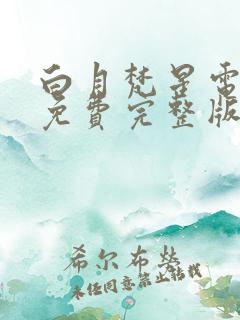 白月梵星電
免費完整版
希尔布勞
未经同意禁止转载